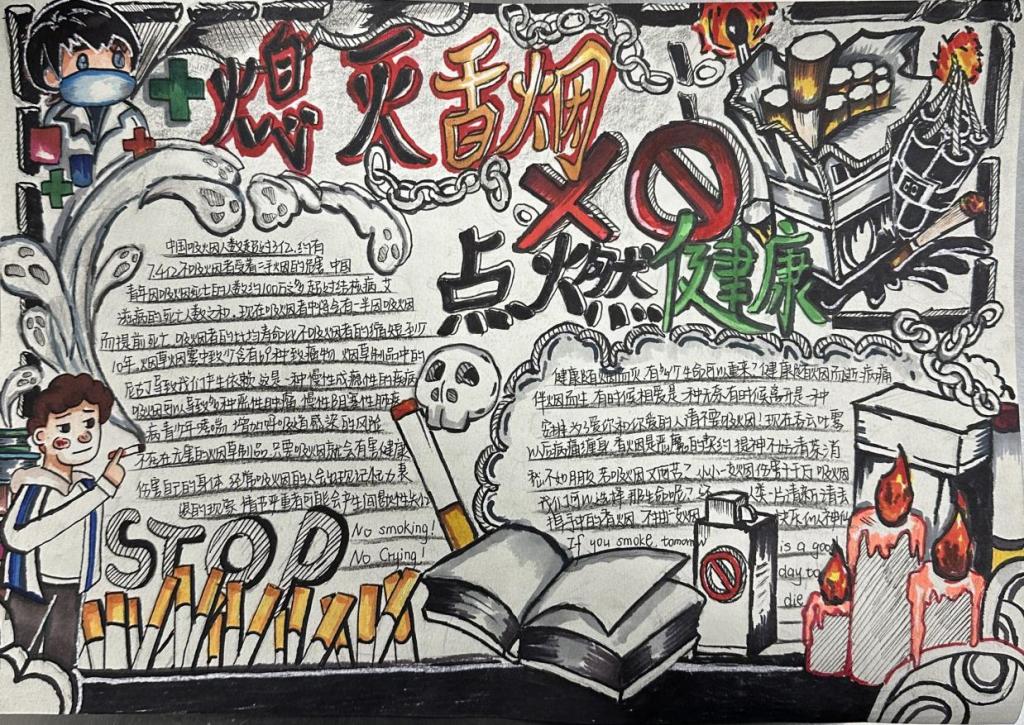 熄灭香烟
点燃健康
中国吸烟人数超过3亿,约有
7.4亿不吸烟者受着二手烟的危害 中国
青年因吸烟死亡的人数约100万之多 超过结核病、艾
滋病的死亡人数之和.现在吸烟者中将会有一半因吸烟
而提前死亡 吸烟者的平均寿命比不吸烟者的缩短至少
10年.烟草烟雾中至少含有69种致癌物 烟草制品中的
尼古丁导致我们产生依赖 这是一种慢性成瘾性的疾病
吸烟可以导致多种恶性肿瘤 慢性阻塞性肺疾
病 青少年哮喘 增加呼吸道感染的风险
不存在无害的烟草制品 只要吸烟就会有害健康
伤害自己的身体 经常吸烟的人会出现记忆力衰
退的现象 情节严重者可能会产生间歇性失忆
STOP
No smoking!
No Crying!
健康随烟而灭 有多少生命可以重来?健康随烟而逝 病痛
伴烟而生 有时候相爱是一种无奈 有时候离开是一种
安排 为了爱你和你爱的人 请不要吸烟!现在吞云吐雾
以后病痛缠身 香烟是恶魔的契约 提神不如青茶 消
愁不如朋友 若吸烟 又何苦?小小一支烟 伤害千万 吸烟
我们何以选择那生命呢?
指手中的香烟
If you smoke, tomorrow
is a good
day to
die